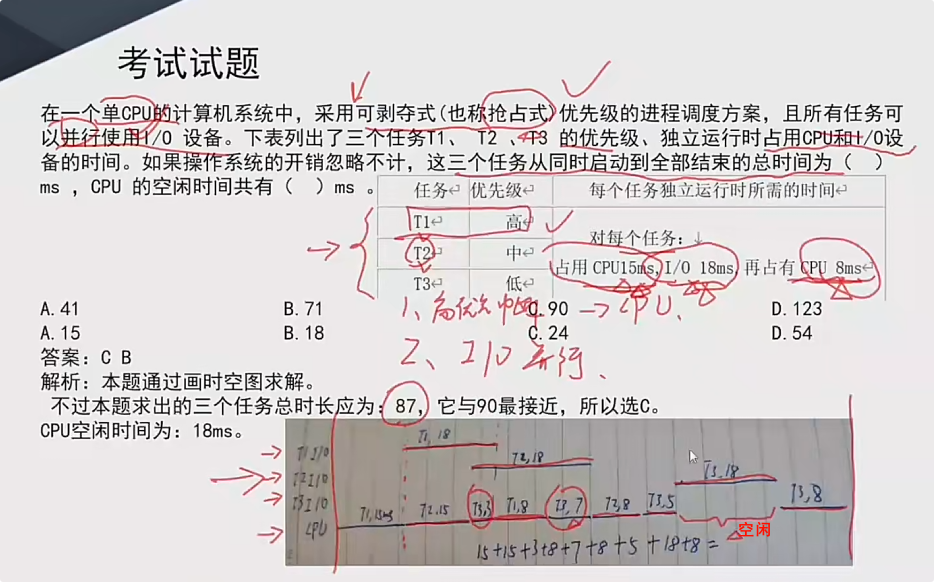 考试试题
在一个单CPU的计算机系统中，采用可剥夺式(也称抢占式)优先级的进程调度方案，且所有任务可
以并行使用I/O 设备。下表列出了三个任务T1、 T2 、T3 的优先级、独立运行时占用CPU和I/O设
备的时间。如果操作系统的开销忽略不计，这三个任务从同时启动到全部结束的总时间为（ ）
ms ，CPU 的空闲时间共有（ ）ms 。
任务 优先级 每个任务独立运行时所需的时间
T1 高
对每个任务：
T2 中
占用 CPU15ms,I/O 18ms,再占有 CPU 8ms
T3 低
A.41 B.71 C.90 D.123
1、高优先 → CPU、
A.15 B.18 C.24 D.54
2、I/O 并行、
答案：C B
解析：本题通过画时空图求解。
不过本题求出的三个任务总时长应为：87，它与90最接近，所以选C。
CPU空闲时间为：18ms。
T1 I/O T1,18
T2 I/O T2,18 T3,18
T3 I/O
CPU T1,15ms T2,15 T3,3 T1,8 T3,7 T2,8 T3,5 空闲 T3,8
15+15+3+8+7+8+5+18+8=